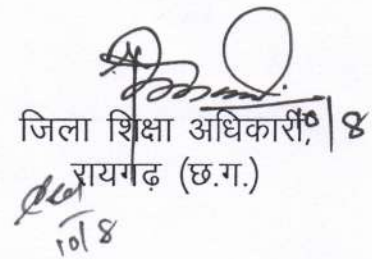 जिला शिक्षा अधिकारी,
रायगढ़ (छ.ग.)
10/8